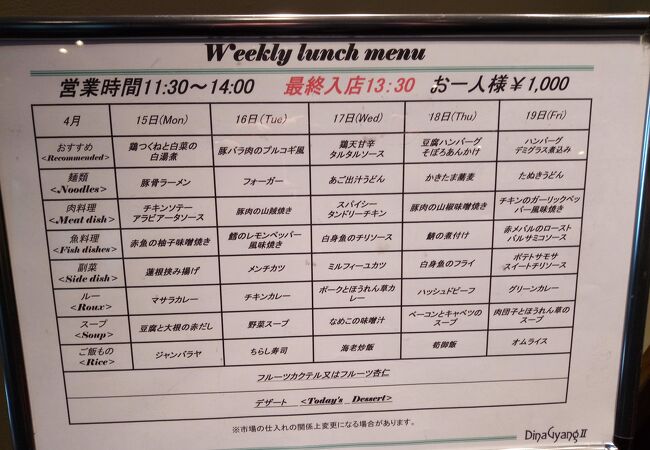 Weekly lunch menu
営業時間11:30～14:00 最終入店13:30 お一人様￥1,000
4月 15日(Mon) 16日(Tue) 17日(Wed) 18日(Thu) 19日(Fri)
おすすめ <Recommended> 鶏つくねと白菜の白湯煮 豚バラ肉のプルコギ風 鶏天甘辛タルタルソース 豆腐ハンバーグそぼろあんかけ ハンバーグデミグラス煮込み
麺類 <Noodles> 豚骨ラーメン フォーガー あご出汁うどん かきたま蕎麦 たぬきうどん
肉料理 <Meat dish> チキンソテーアラビアータソース 豚肉の山賊焼き スパイシータンドリーチキン 豚肉の山椒味噌焼き チキンのガーリックペッパー風味焼き
魚料理 <Fish dishes> 赤魚の柚子味噌焼き 鱈のレモンペッパー風味焼き 白身魚のチリソース 鯖の煮付け 赤メバルのローストバルサミコソース
副菜 <Side dish> 蓮根挟み揚げ メンチカツ ミルフィーユカツ 白身魚のフライ ポテトサモサスイートチリソース
ルー <Roux> マサラカレー チキンカレー ポークとほうれん草カレー ハッシュドビーフ グリーンカレー
スープ <Soup> 豆腐と大根の赤だし 野菜スープ なめこの味噌汁 ベーコンとキャベツのスープ 肉団子とほうれん草のスープ
ご飯もの <Rice> ジャンバラヤ ちらし寿司 海老炒飯 筍御飯 オムライス
フルーツカクテル又はフルーツ杏仁
デザート <Today's Dessert>
※市場の仕入れの関係上変更になる場合があります。
DinaGyang II